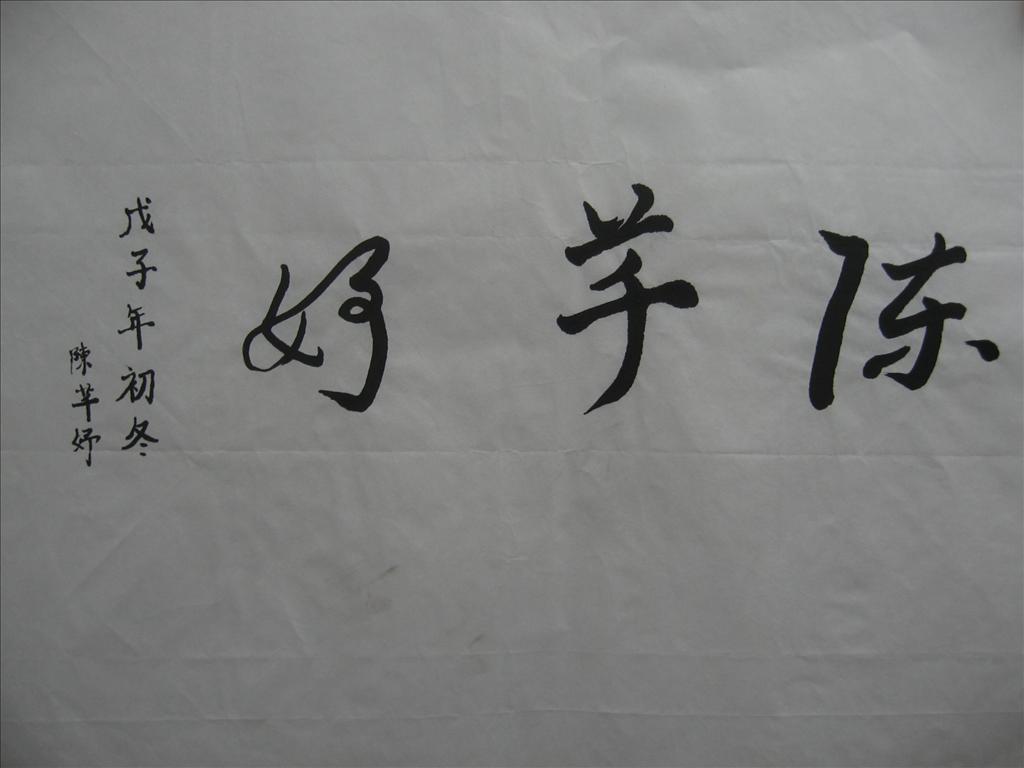 陈芊妤
戊子年初冬
陳芊妤